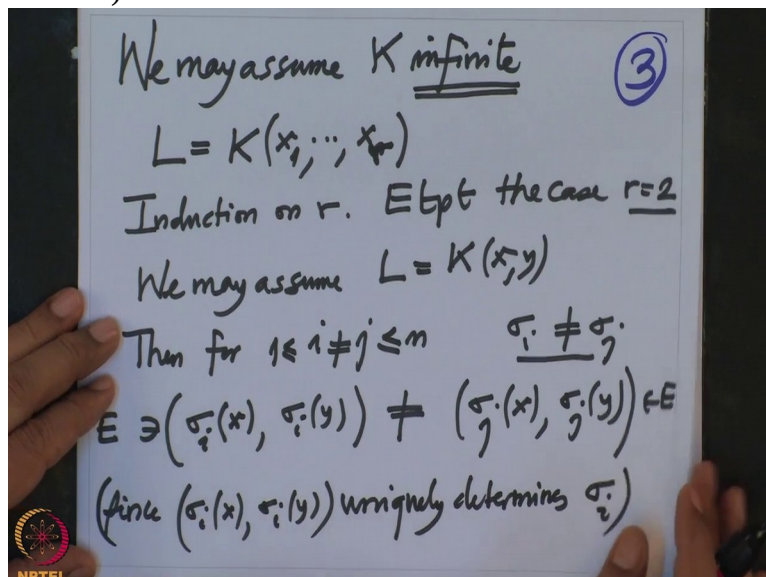 We may assume K infinite
③
L = K(x₁, ..., xᵣ)
Induction on r. Etpt the case r=2
We may assume L = K(x, y)
Then for 1 ≤ i ≠ j ≤ n σᵢ ≠ σⱼ
E ∋ (σᵢ(x), σᵢ(y)) ≠ (σⱼ(x), σⱼ(y)) ∈ E
(since (σᵢ(x), σᵢ(y)) uniquely determines σᵢ)
NPTEL